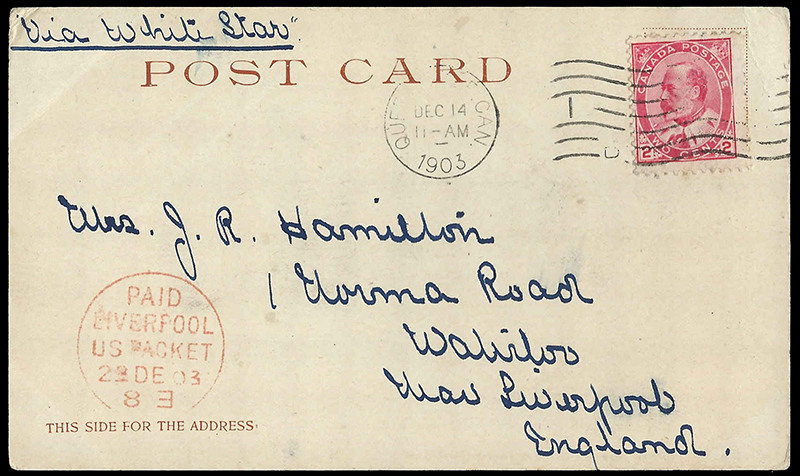 "Via White Star".
POST CARD
CANADA POSTAGE
2 TWO CENTS 2
QUE CAN.
DEC 14
11-AM
1903
Mrs. J. R. Hamilton
1 Norma Road
Waterloo
Near Liverpool
England.
PAID
LIVERPOOL
US PACKET
DE 03
8 3
THIS SIDE FOR THE ADDRESS.